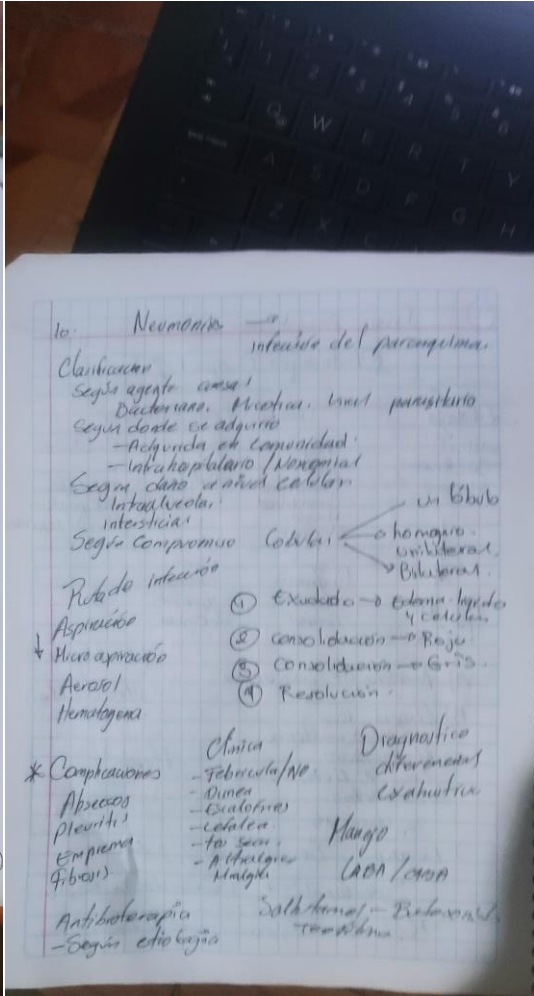 10. Neumonia →
infección del parenquima.
Clasificacion
Según agente causal
Bacteriano. Micotica. Viral parasitario
Según donde se adquirio
- Adquirida en comunidad.
- Intrahopitalario / Nosomial
Según daño a nivel celular
Intraalveolar.
intersticial
Según Compromiso
un lóbulo
unilateral.
Bilateral.
Ruta de infección
Aspiración
↓ Microaspiración
Aerosol
Hematogena
① Exudado → Edema liquido
y celulas
② consolidación → Rojo
③ Consolidación → Gris.
④ Resolución.
* Complicaciones
Absesos
Pleuritis
Empiema
Fibrosis
Clinica
- Febricula/No.
- Disnea
- Escalofrios
- Cefalea.
- tos seca
- Altralgia
Mialgia
Diagnostico
diferencial
Manejo
Antibioterapia
- Según etiologia
Salbutamol -